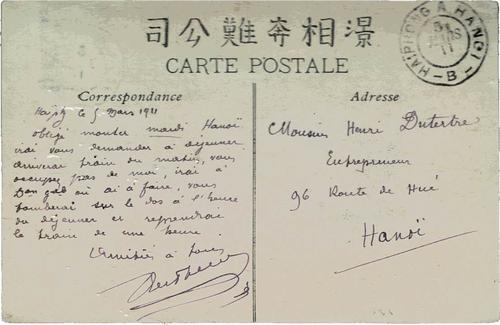 司公難奔相濍
CARTE POSTALE
Correspondance
le 5 Mars 1911
obligé monter mardi Hanoï
irai vous demander à déjeuner
arriverai train du matin, vous
occupez pas de moi, irai à
où ai à faire, vous
tomberai sur le dos à l'heure
du déjeuner et reprendrai
le train de une heure.
Amitiés à tous
Adresse
Monsieur Henri Dutertre
Entrepreneur
96 Route de Hué
Hanoï
HAÏPHONG A HANOI
MARS
11
B